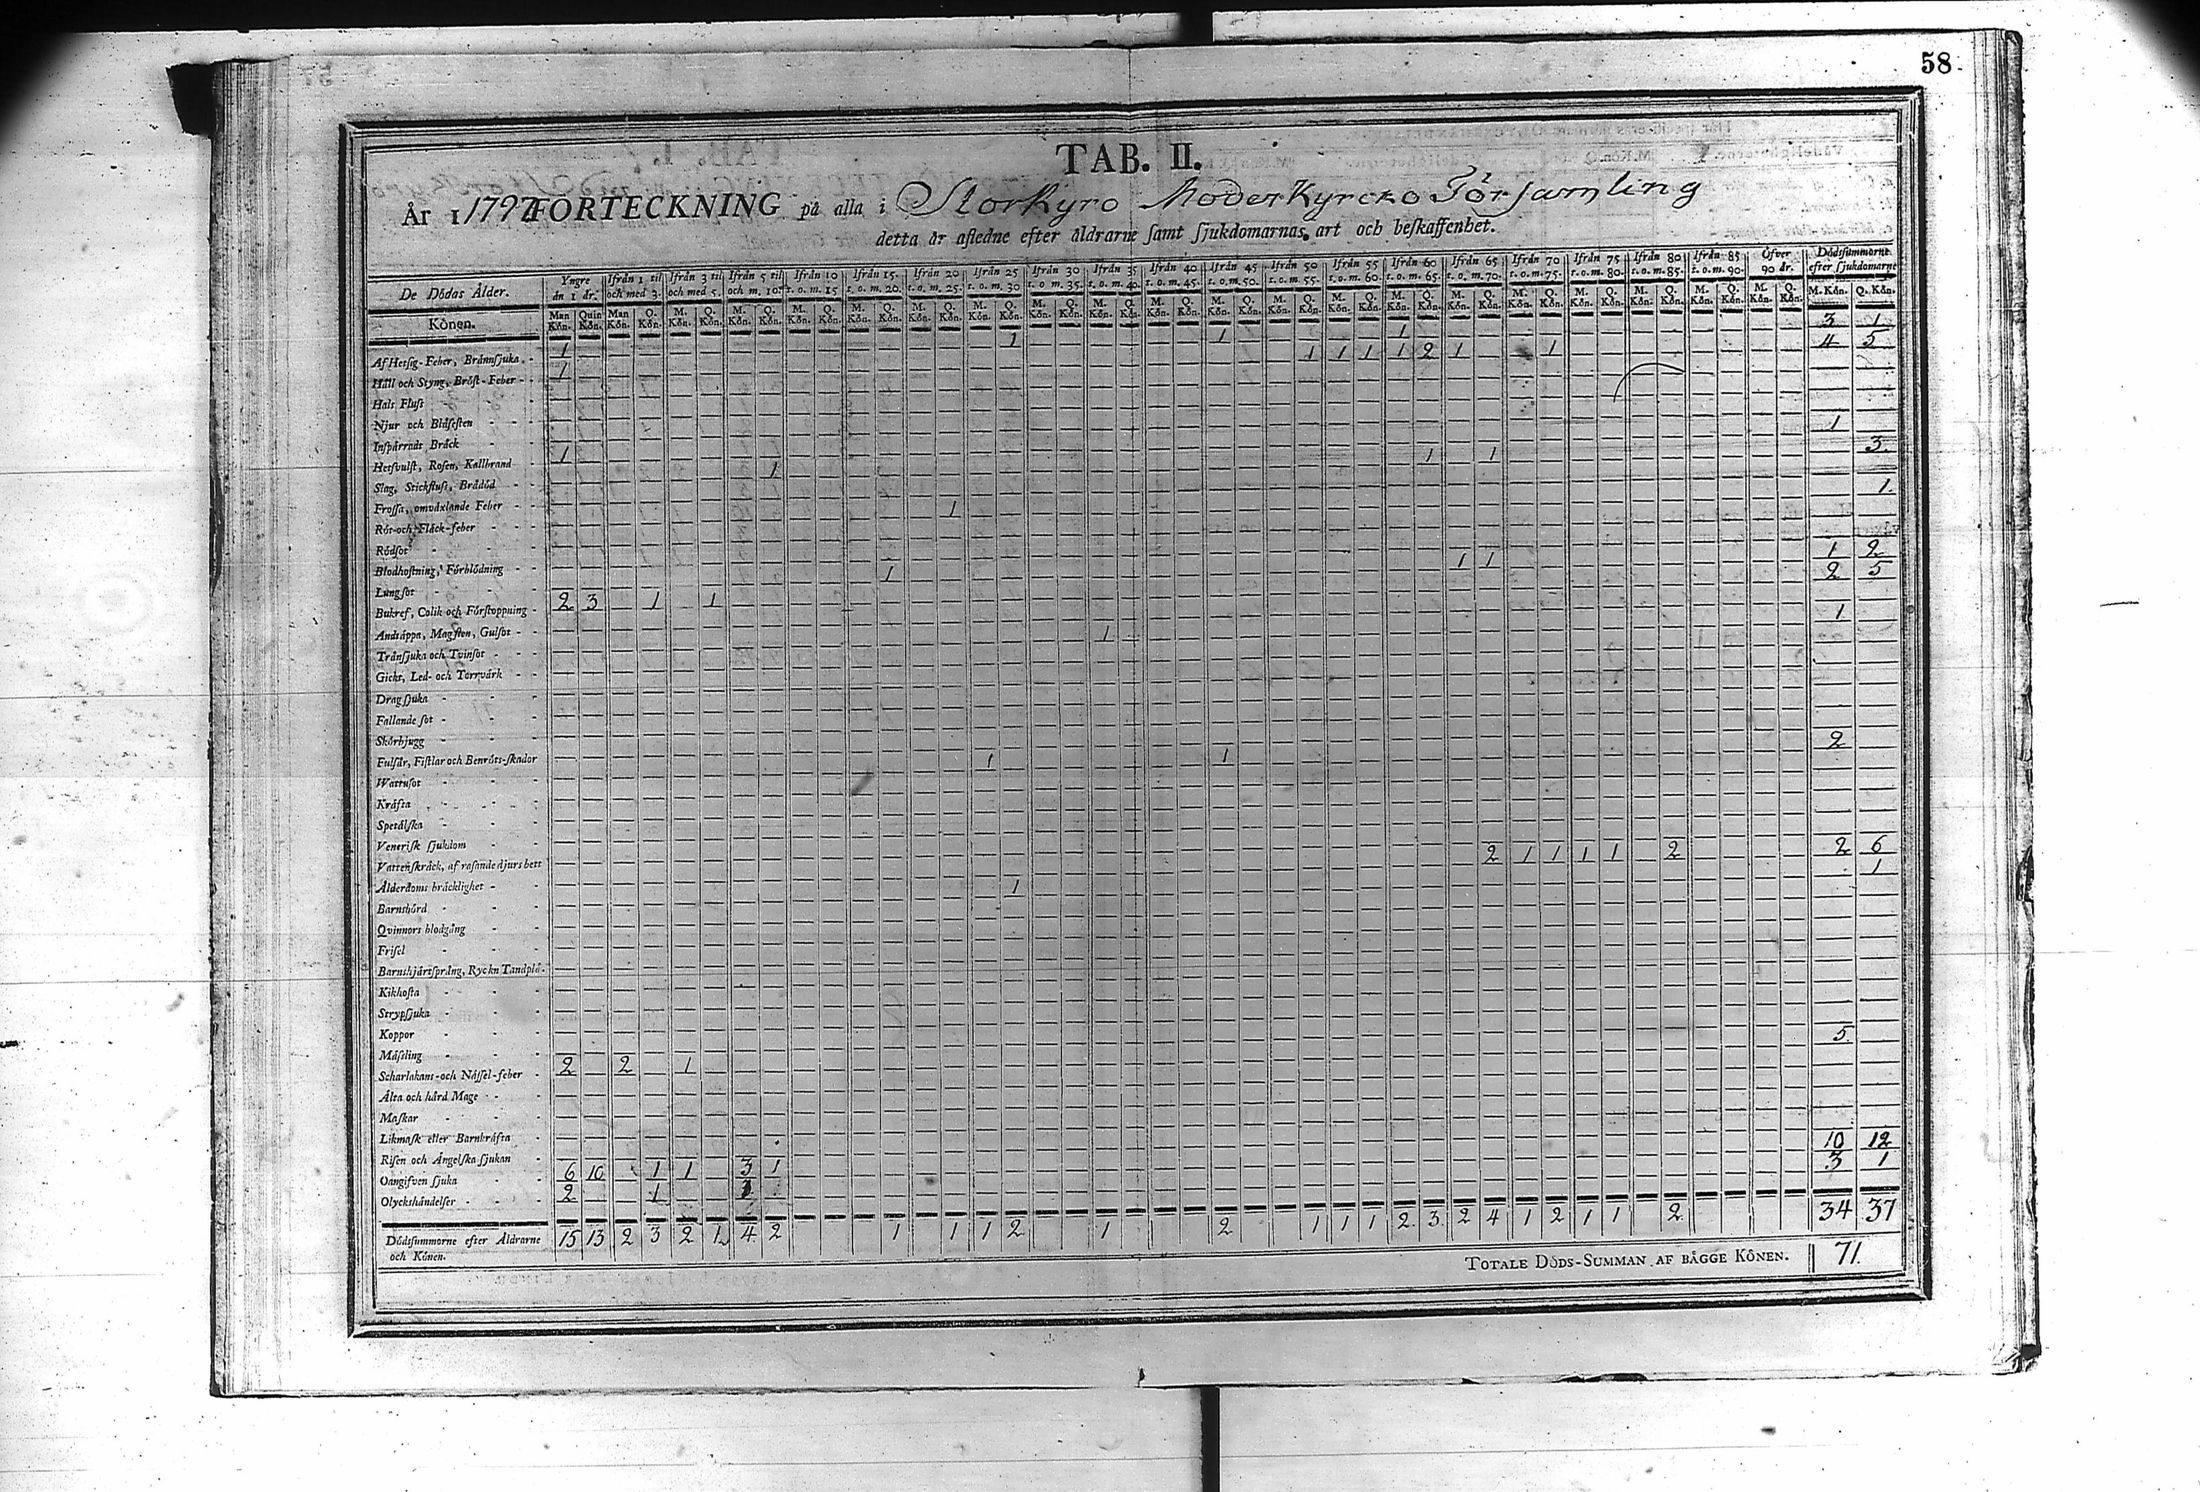 58
TAB. II.
År 1797 FÖRTECKNING på alla i Storkyro Moderkyrcko Församling
detta år afledne efter åldrarne samt sjukdomarnas art och beskaffenhet.
De Dödas Ålder. Yngre än 1 år. Ifrån 1 til och med 3. Ifrån 3 til och med 5. Ifrån 5 til och m. 10. Ifrån 10 t. o. m. 15 Ifrån 15 t. o. m. 20. Ifrån 20 t. o. m. 25. Ifrån 25 t. o. m. 30 Ifrån 30 t. o. m. 35. Ifrån 35 t. o. m. 40. Ifrån 40 t. o. m. 45. Ifrån 45 t. o. m. 50. Ifrån 50 t. o. m. 55. Ifrån 55 t. o. m. 60. Ifrån 60 t. o. m. 65. Ifrån 65 t. o. m. 70. Ifrån 70 t. o. m. 75. Ifrån 75 t. o. m. 80. Ifrån 80 t. o. m. 85. Ifrån 85 t. o. m. 90. Öfver 90 år. Dödssummorne efter sjukdomarne
Könen. Man Kön. Quin Kön. Man Kön. Q. Kön. M. Kön. Q. Kön. M. Kön. Q. Kön. M. Kön. Q. Kön. M. Kön. Q. Kön. M. Kön. Q. Kön. M. Kön. Q. Kön. M. Kön. Q. Kön. M. Kön. Q. Kön. M. Kön. Q. Kön. M. Kön. Q. Kön. M. Kön. Q. Kön. M. Kön. Q. Kön. M. Kön. Q. Kön. M. Kön. Q. Kön. M. Kön. Q. Kön. M. Kön. Q. Kön. M. Kön. Q. Kön. M. Kön. Q. Kön. M. Kön. Q. Kön. M. Kön. Q. Kön.
Af Hetsig-Feber, Brännsjuka 1 1 1 1 3 1
Håll och Styng, Bröst-Feber 1 1 1 1 1 2 1 1 4 5
Hals Fluss
Njur och Blåsesten
Inspärradt Bråck
Hetsvulst, Rosen, Kallbrand 1 1 1 1
Slag, Stickfluss, Brådöd 1 3.
Frossa, omväxlande Feber
Röt-och Fläck-feber 1 1.
Rödsot
Blodhostning, Förblödning
Lungsot 1 1 1 1 2
Bukref, Colik och Förstoppning 2 3 1 1 2 5
Andtäppa, Magsten, Gulsot 1 1
Trånsjuka och Tvinsot
Gickt, Led- och Torrvärk
Dragsjuka
Fallande sot
Skörbjugg
Fulsår, Fistlar och Benröts-skador 1 1 2
Wattusot
Kräfta
Spetälska
Venerisk sjukdom
Vattenskräck, af rasande djurs bett 2 1 1 1 1 2 2 6
Ålderdoms bräcklighet 1 1
Barnsbörd
Qvinnors blodgång
Frisel
Barnshjärtsprång, Ryck n Tandplå.
Kikhosta
Strypsjuka
Koppor
Mässling
Scharlakans-och Nässel-feber 2 2 1 5
Älta och hård Mage
Maskar
Likmask eller Barnkräfta
Risen och Ängelska sjukan
Oangifven sjuka 6 10 1 1 3 1 10 12
Olyckshändelser 2 1 1 3 1
Dödssummorne efter Åldrarne och Könen. 15 13 2 3 2 1 4 2 1 1 1 2 1 2 1 1 1 2 3 2 4 1 2 1 1 2 34 37
TOTALE DÖDS-SUMMAN AF BÄGGE KÖNEN. 71.